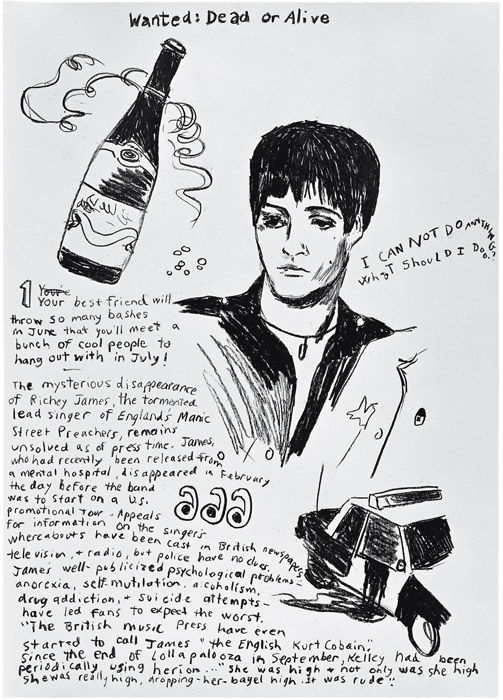 Wanted: Dead or Alive
I CAN NOT DO ANYTHING
WHAT SHOULD I DO?
1 Your
Your best friend will
throw so many bashes
in June that you'll meet a
bunch of cool people to
hang out with in July!
The mysterious disappearance
of Richey James, the tormented
lead singer of England's Manic
Street Preachers, remains
unsolved as of press time. James,
who had recently been released from
a mental hospital, disappeared in February
the day before the band
was to start on a U.S.
promotional tour. Appeals
for information on the singers
whereabouts have been cast in British newspapers,
television, + radio, but police have no clues.
James' well-publicized psychological problems -
anorexia, self-mutilation, alcoholism,
drug addiction, + suicide attempts -
have led fans to expect the worst.
"The British music press have even
started to call James "the English Kurt Cobain."
Since the end of Lollapalooza in September, Kelley had been
periodically using herion..." She was high + not only was she high
she was really high, dropping-her-bagel high. It was rude."